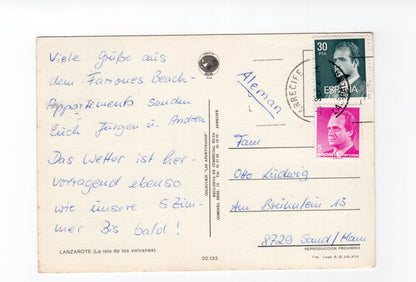 Viele Grüße aus
dem Fariones Beach-
Appartements senden
Euch Jürgen u. Andrea
Das Wetter ist her-
vorragend ebenso
wie unsere 5 Zim-
mer Bis bald!
LANZAROTE (La isla de los volcanes).
20.133
ARRECIFE
Aleman
30
PTA
ESPAÑA
Fam
Otto Ludwig
Am Breihnlein 13
8729 Sand/Main
REPRODUCCION PROHIBIDA